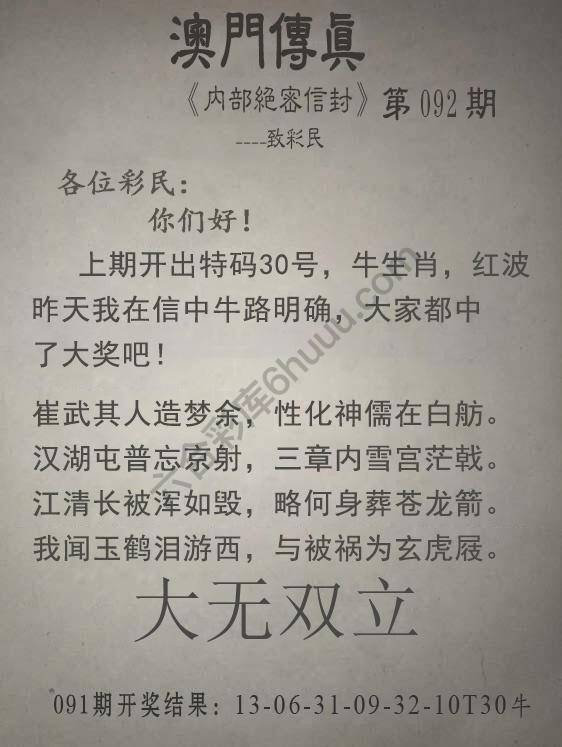 澳門傳眞
《内部絕密信封》第 092 期
----致彩民
各位彩民：
你们好！
上期开出特码30号，牛生肖，红波
昨天我在信中牛路明确，大家都中
了大奖吧！
崔武其人造梦余，性化神儒在白舫。
汉湖屯普忘京射，三章内雪宫茫戟。
江清长被浑如毁，略何身葬苍龙箭。
我闻玉鹤泪游西，与被祸为玄虎屐。
大无双立
091期开奖结果：13-06-31-09-32-10T30牛
六合彩库6huuu.com